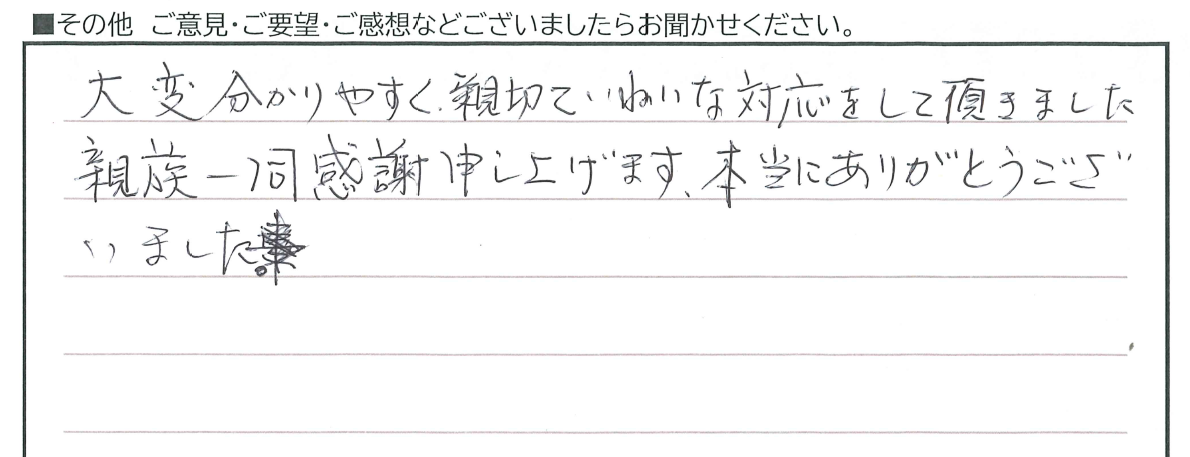 ■その他 ご意見・ご要望・ご感想などございましたらお聞かせください。
大変分かりやすく、親切ていねいな対応をして頂きました
親族一同感謝申し上げます、本当にありがとうござ
いました。